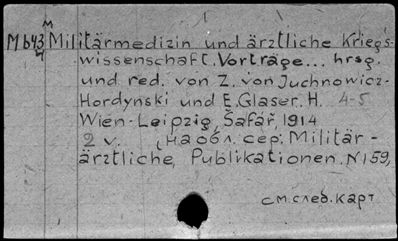 м
Mb43 Militärmedizin und ärztliche Kriegs-
wissenschaft. Vorträge... hrsg.
und red. von Z. von Juchnowicz-
Hordynski und E. Glaser. H. 4-5
Wien-Leipzig, Šafář, 1914
2 v. (на обл. сер: Militär-
ärztliche Publikationen. N 159,
см. след. карт